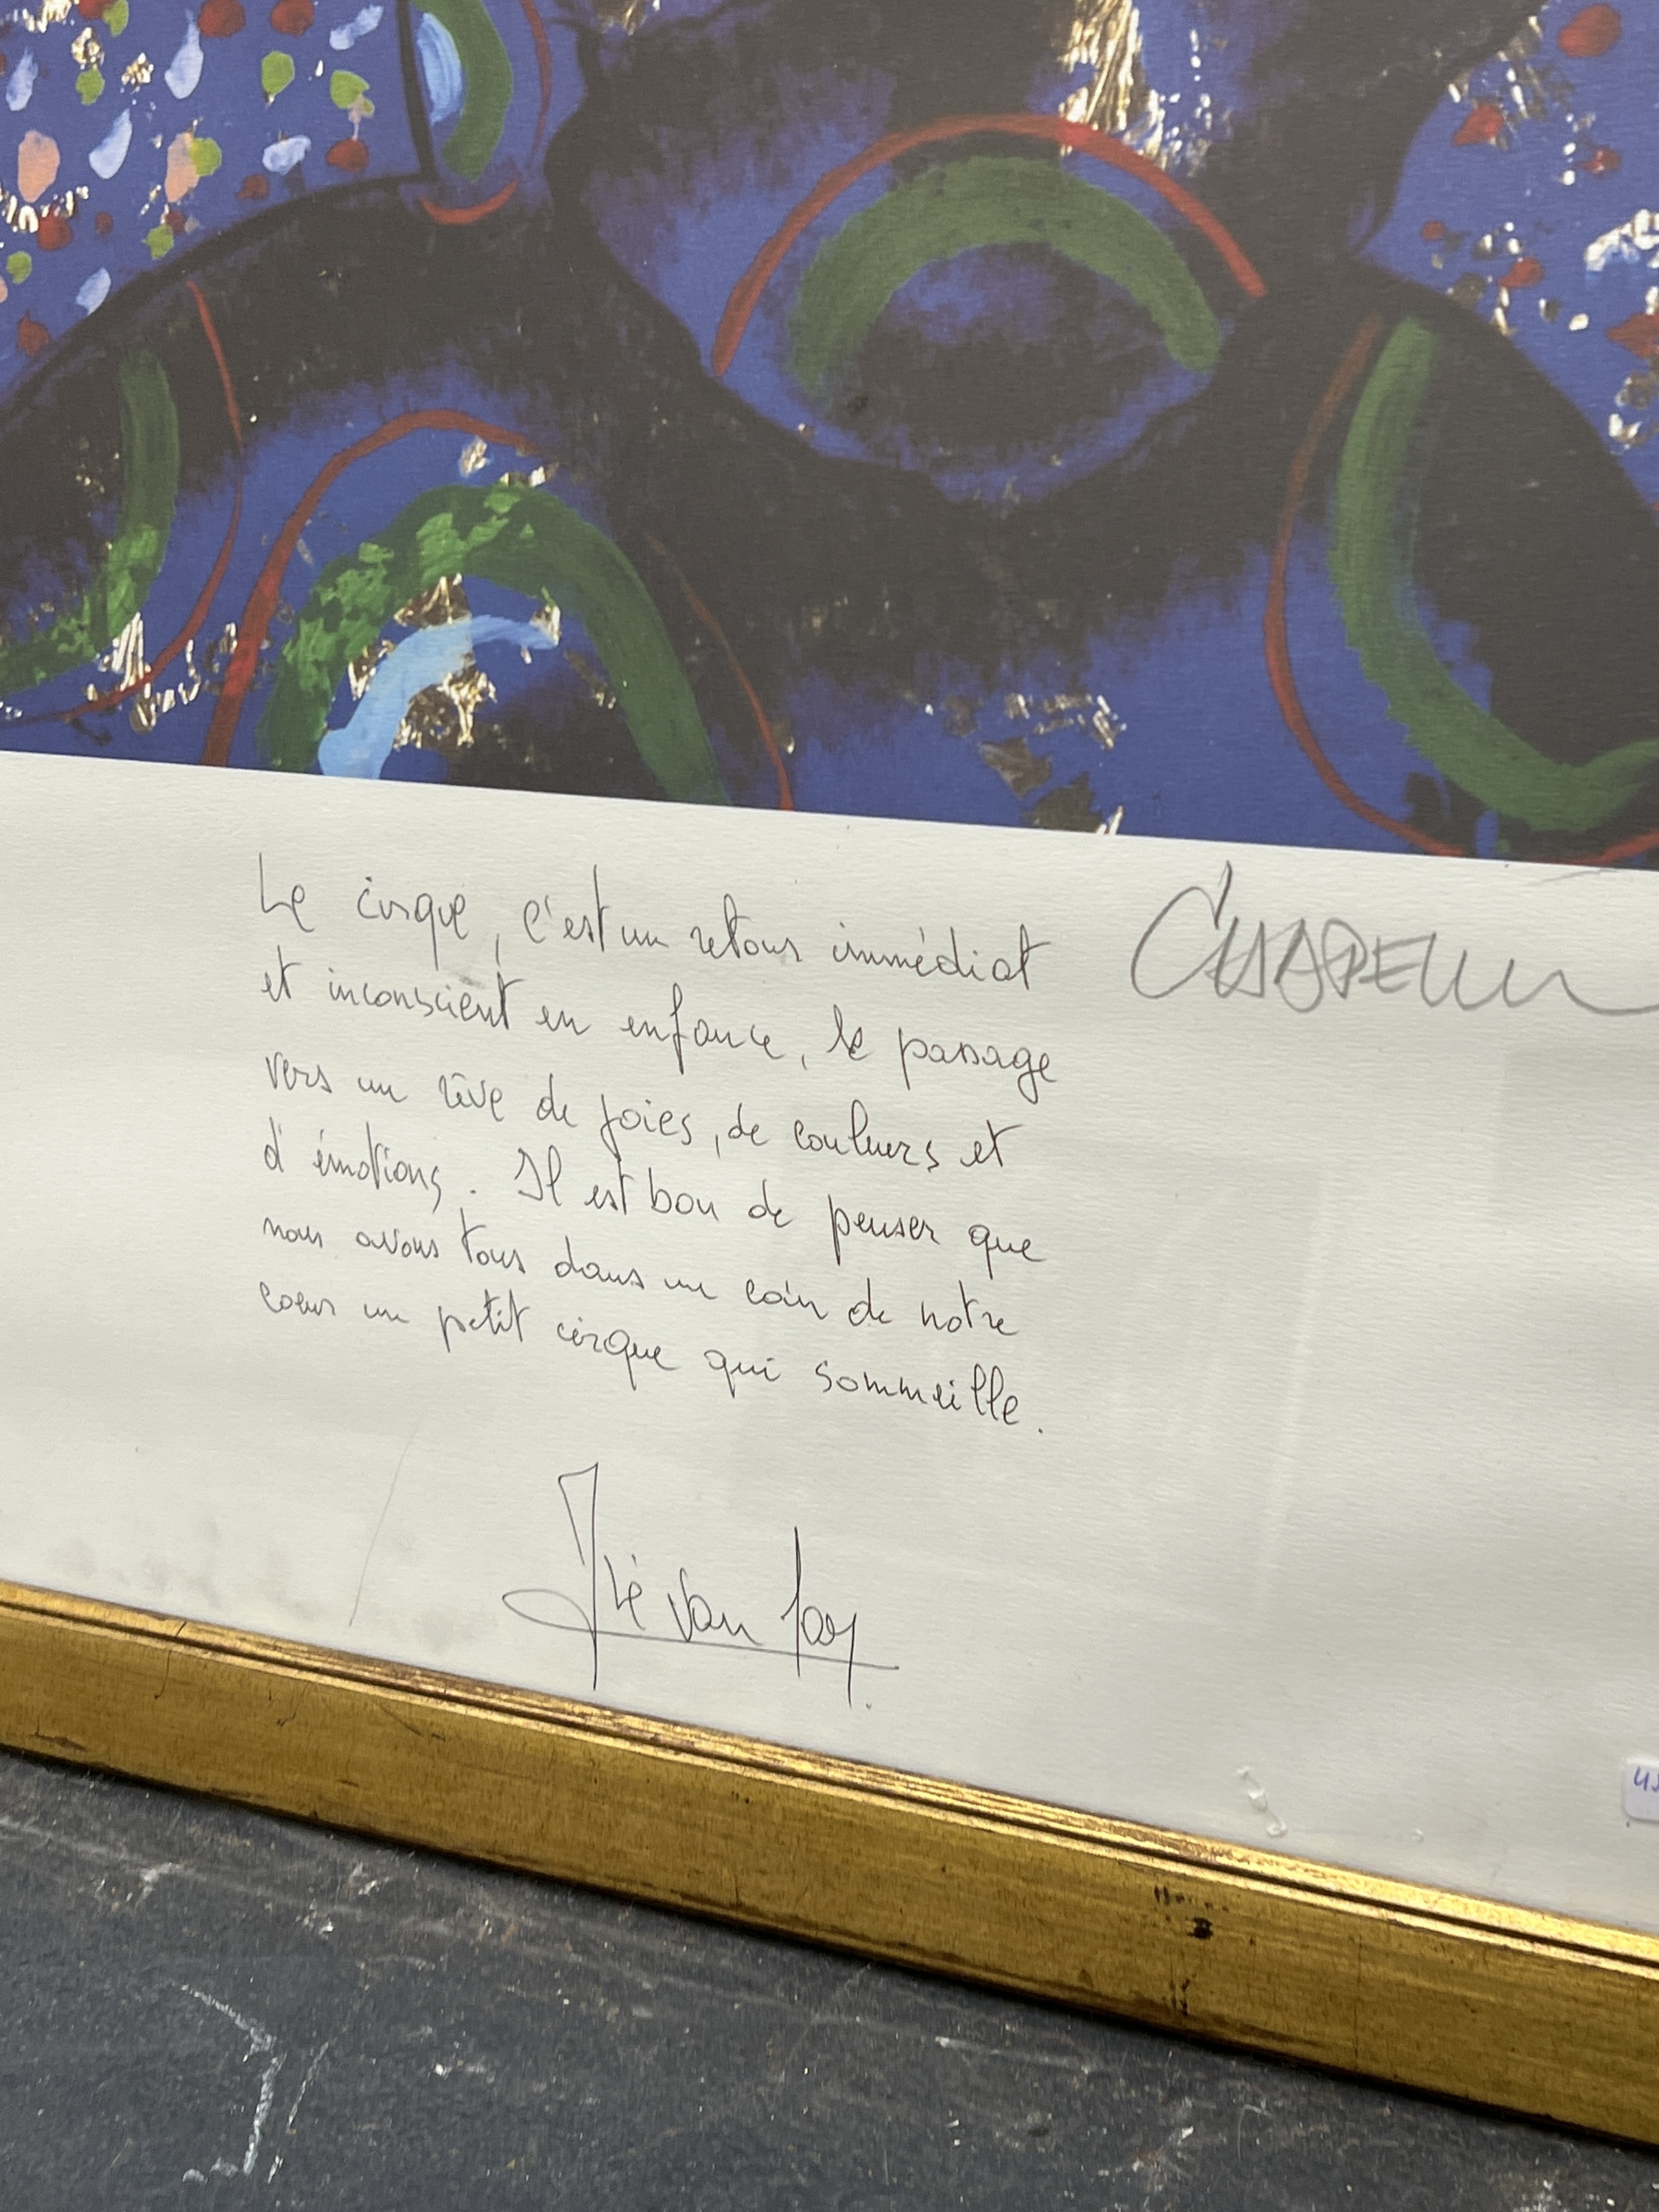 Le cirque, c'est un retour immédiat
et inconscient en enfance, le passage
vers un rêve de joies, de couleurs et
d'émotions. Il est bon de penser que
nous avons tous dans un coin de notre
coeur un petit cirque qui sommeille.